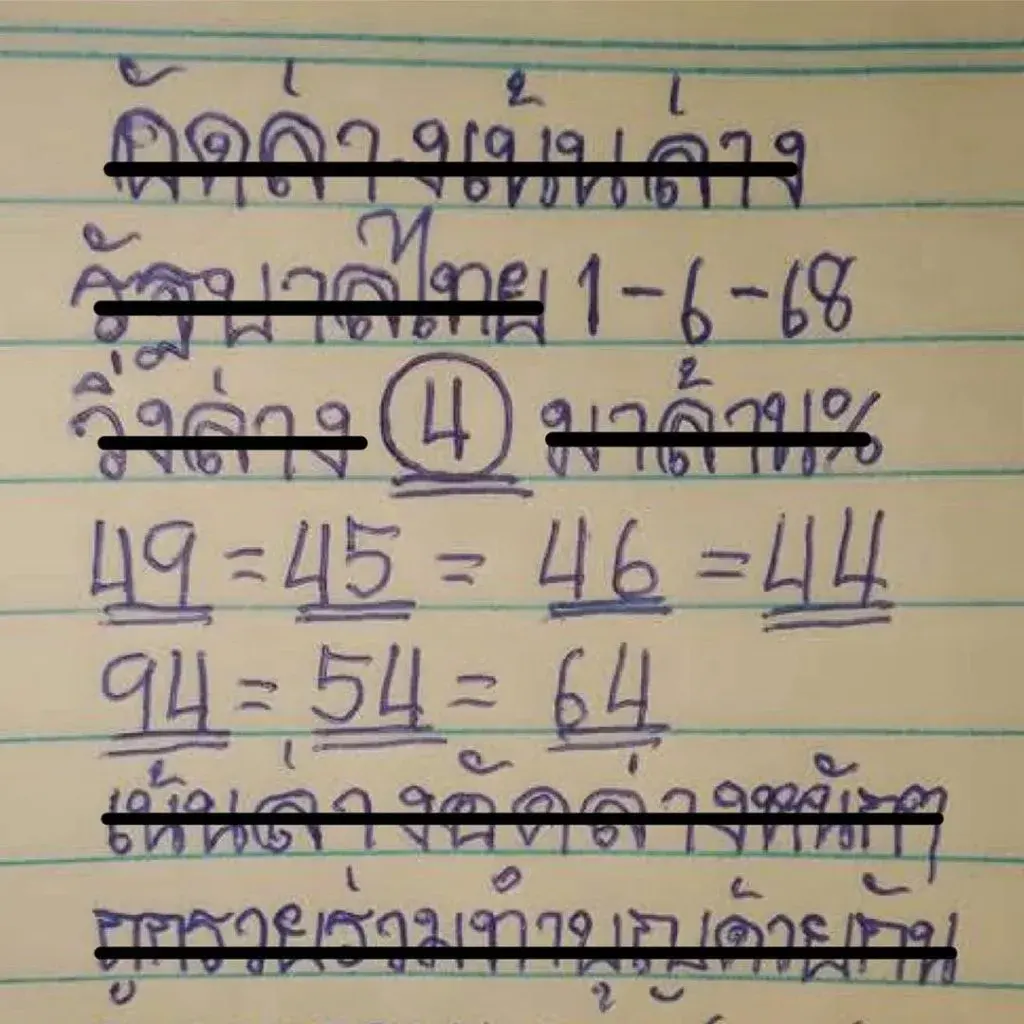 อัดล่างเน้นล่าง
รัฐบาลไทย 1-6-68
วิ่งล่าง 4 มาล้าน%
49 = 45 = 46 = 44
94 = 54 = 64
เน้นล่างอัดล่างหนักๆ
ถูกรวยร่วมทำบุญด้วยกัน